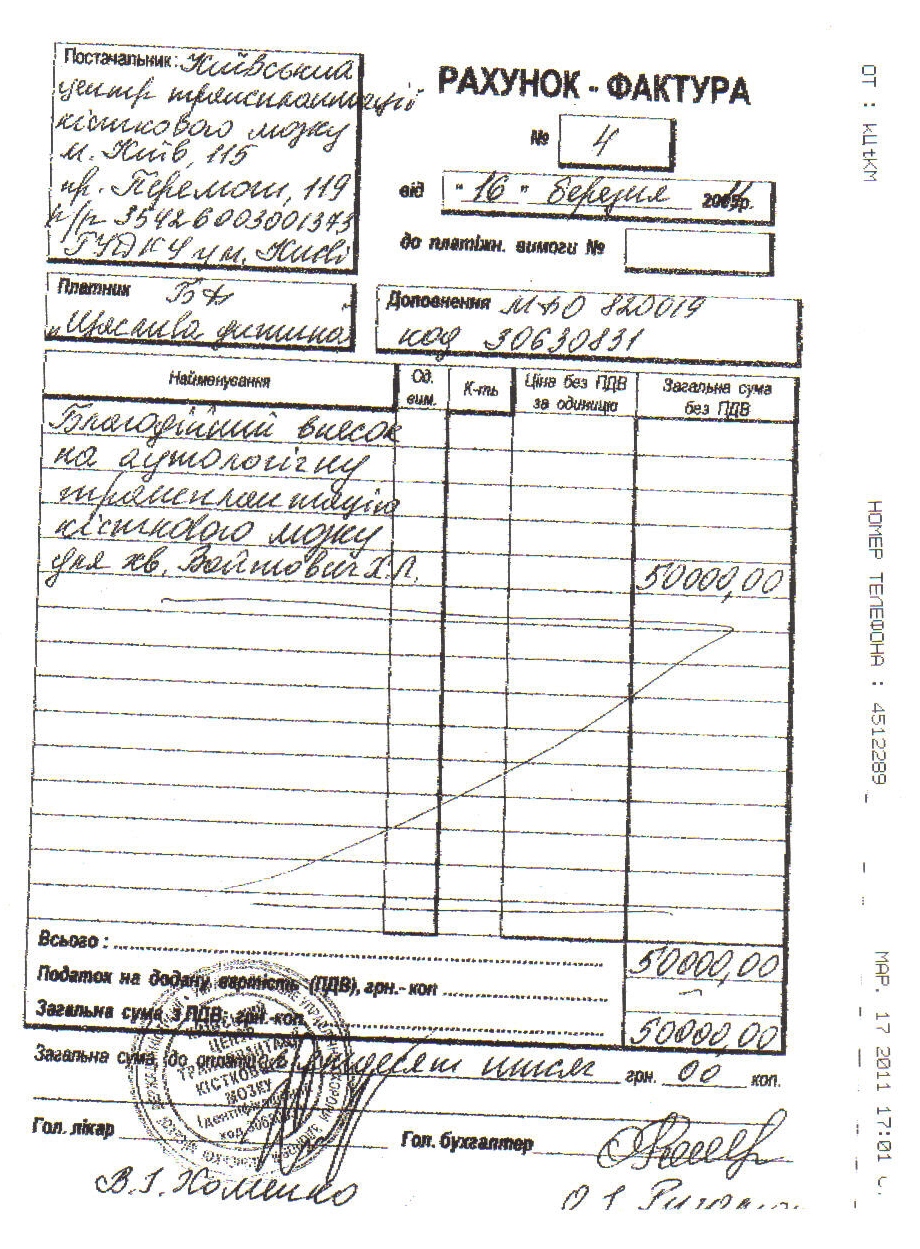 Постачальник: Київський
центр трансплантації
кісткового мозку
м. Київ, 115
пр. Перемоги, 119
р/р 35426003001373
ГУДКУ у м. Києві
РАХУНОК - ФАКТУРА
№ 4
від "16" березня 2011р.
до платіжн. вимоги №
Платник БФ
"Щаслива дитина"
Доповнення МФО 820019
код 30630831
Найменування
Од. вим.
К-ть
Ціна без ПДВ за одиницю
Загальна сума без ПДВ
Благодійний внесок
на аутологічну
трансплантацію
кісткового мозку
для хв. Войтович Х.Л. 50000,00
Всього: 50000,00
Податок на додану вартість (ПДВ), грн.- коп –
Загальна сума з ПДВ, грн.-коп. 50000,00
Загальна сума до оплати п'ятдесят тисяч грн. 00 коп.
Гол. лікар Гол. бухгалтер
В.І. Хоменко
ЦЕНТР
ТРАНСПЛАНТАЦІЇ
КІСТКОВОГО
МОЗКУ
Ідентифікаційний
код
ОТ : КЦТКМ
НОМЕР ТЕЛЕФОНА : 4512289
МАР. 17 2011 17:01 С.